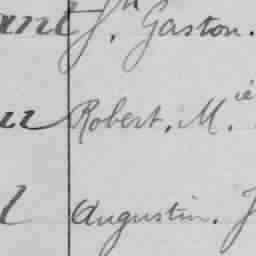 ant Jn. Gaston.
u Robert. M.ie
l Augustin. J